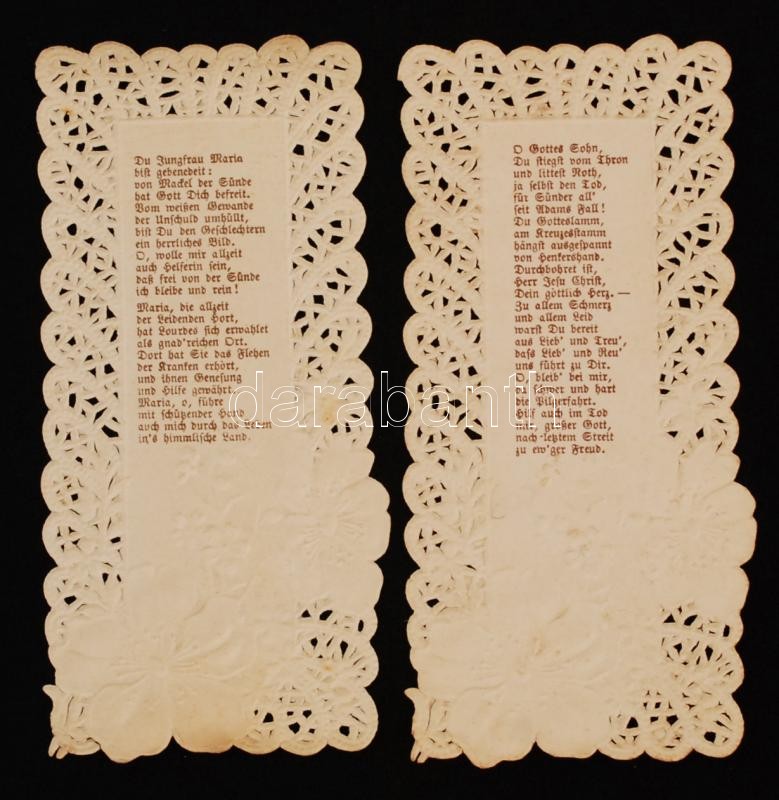 Du Jungfrau Maria
bist gebenedeit:
von Mackel der Sünde
hat Gott Dich befreit.
Vom weißen Gewande
der Unschuld umhüllt,
bist Du den Geschlechtern
ein herrliches Bild.
O, wolle mir allzeit
auch Helferin sein,
daß frei von der Sünde
ich bleibe und rein!
Maria, die allzeit
der Leidenden Hort,
hat Lourdes sich erwählet
als gnad'reichen Ort.
Dort hat Sie das Flehen
der Kranken erhört,
und ihnen Genesung
und Hilfe gewährt.
Maria, o, führe
mit schützender Hand
auch mich durch das Leben
in's himmlische Land.
O Gottes Sohn,
Du stiegst vom Thron
und littest Noth,
ja selbst den Tod,
für Sünder all'
seit Adams Fall!
Du Gotteslamm,
am Kreuzesstamm
hängst ausgespannt
von Henkershand.
Durchbohret ist,
Herr Jesu Christ,
Dein göttlich Herz. —
Zu allem Schmerz
und allem Leid
warst Du bereit
aus Lieb' und Treu',
dass Lieb' und Reu'
uns führt zu Dir.
O, bleib' bei mir,
so schwer und hart
die Pilgerfahrt.
Hilf auch im Tod
mir, großer Gott,
nach letztem Streit
zu ew'ger Freud.
darabanth